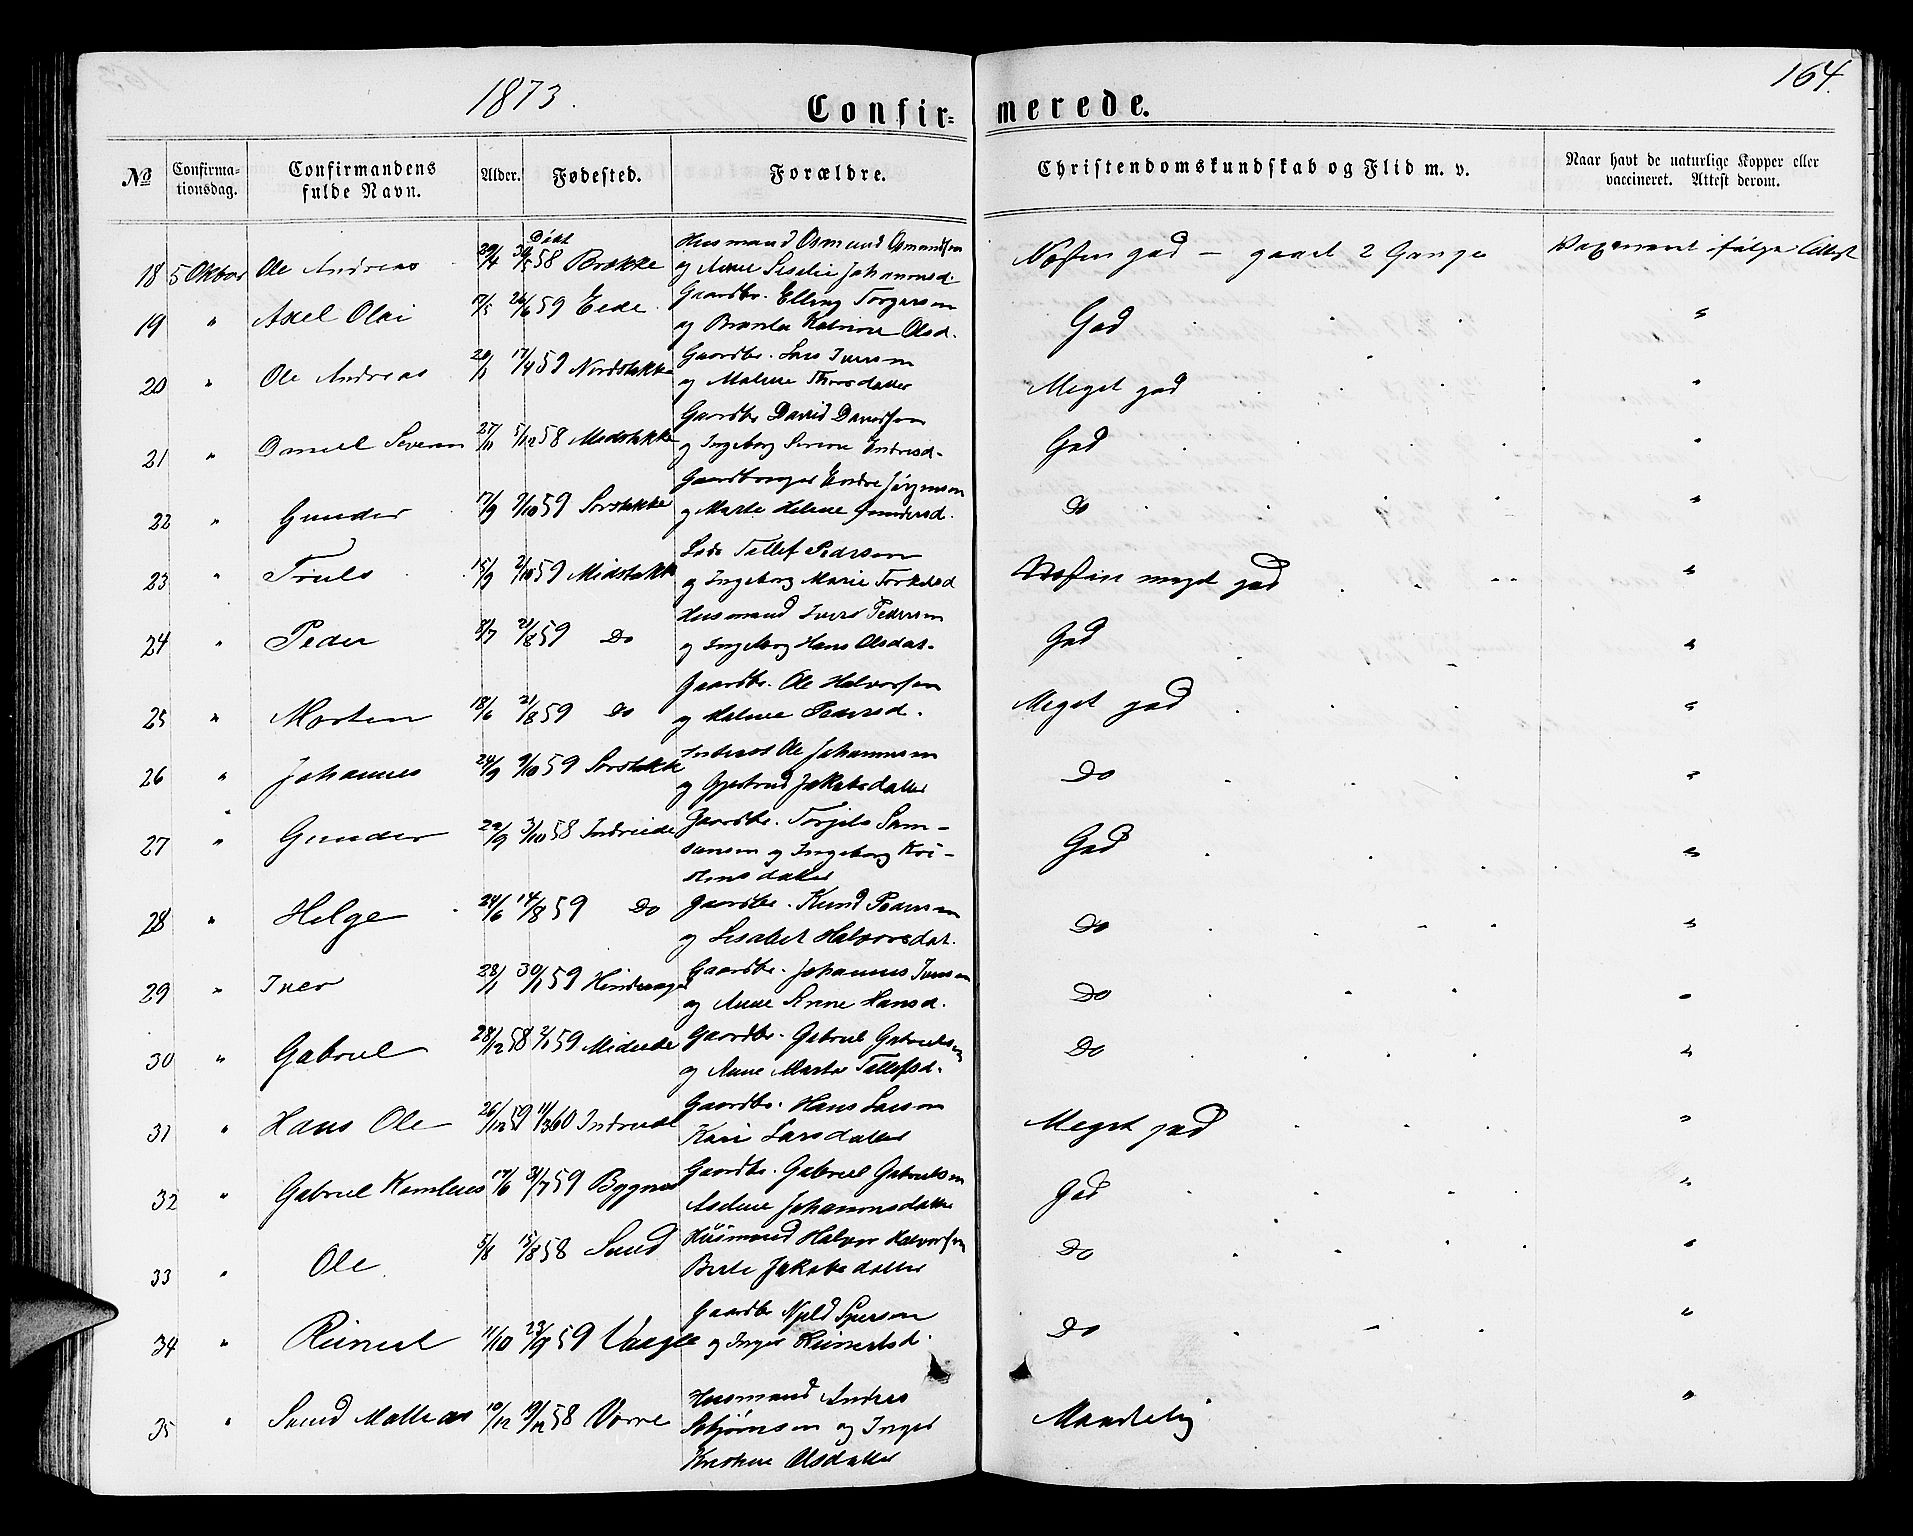 1873.
164.
Confir- merede.
No Confirma- tionsdag. Confirmandens fulde Navn. Alder. Fødested. Forældre. Christendomskundskab og Flid m. v. Naar havt de naturlige Kopper eller vaccineret. Attest derom.
Døbt
Husmand Osmund Osmundsen
18 5 Oktober Ole Andreas 29/4 30/5 58 Brække Næsten god – gaaet 2 Gange
og Anne Johannesd.
Gaardbr. Elling Torgersen
19 " Axel Olai 26/6 59 Eede God "
og Katrine Olsd.
Gaardbr. Lars Iversen
20 " Ole Andreas 17/4 59 Meget god "
og Malene Thorsdatter
Gaardbr David Davidsen
21 " Severin 27/11 5/12 58 Midstokke God "
og Ingeborg Serine Endresd.
Gaardbruger Endre Jörgensen
22 " Gunder 17/9 9/10 59 Do "
og Marte Helene Gundersd.
Tallef Pedersen
23 " Truls 15/9 2/10 59 Midstokke Næsten meget god "
og Ingeborg Marie
Husmand Iver Pedersen
24 " Peder 8/7 21/8 59 Do God "
og Ingeborg Hans Olsdat.
Gaardbr. Ole Halvorsen
25 " Morten 18/6 21/8 59 Do Meget god "
og Malene
Ole Johannesen
26 " Johannes 24/9 9/10 59 Do "
og Jakobsdatter
Gaardbr. Torgils Sam-
27 " Gunder 22/9 3/10 58 Indreeide God "
sonsen og Ingeborg Kri-
stensdatter
Gaardbr. Knud Pedersen
28 " Helge 24/6 14/8 59 Do Do "
og Lisabet Halvorsdat.
Gaardbr. Johannes Iversen
29 " Iver 28/1 30/1 59 Do "
og Anne Serine Hansd.
Gaardbr. Gabriel Gabrielsen
30 " Gabriel 28/12 58 2/1 59 Do "
og Anne Marta Tallefsd.
Gaardbr. Hans Larsen
31 " Hans Ole 26/12 59 11/3 60 Meget god "
Kari Larsdatter
Gaardbr. Gabriel Gabrielsen
32 " Gabriel Kornelius 17/6 31/7 59 Bygnes God "
Aselene Johannesdatter
Husmand Halvor Halvorsen
33 " Ole 5/8 15/8 58 Sund Do "
Berte Jakobsdatter
Gaardbr
34 " Reinert 11/10 23/9 59 Vaagle Do "
og Inger Reinertsd.
Husmand Andres
35 " Svend Mathias 10/12 19/12 58 Vorre Maadelig "
og Inger
Olsdatter